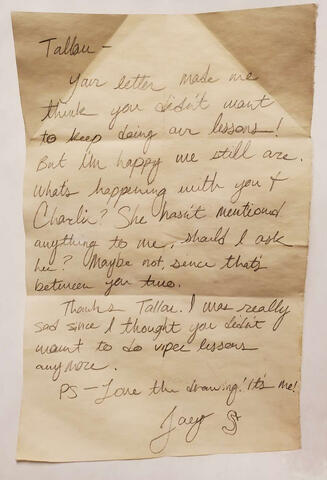 Tallau –
Your letter made me
think you didn't want
to keep doing our lessons!
But I'm happy we still are.
Whats happening with you &
Charlie? She hasn't mentioned
anything to me, should I ask
her? Maybe not, since that's
between you two.
Thanks Tallau. I was really
sad since I thought you didn't
want to do viper lessons
anymore.
PS – Love the drawing! It's me!